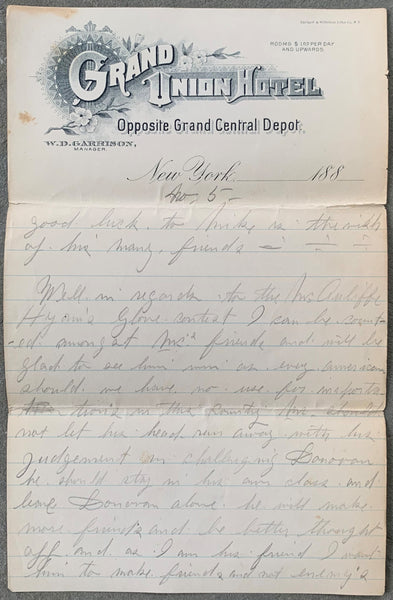 ROOMS $1.00 PER DAY
AND UPWARDS
GRAND
UNION HOTEL
Opposite Grand Central Depot.
W.D. GARRISON,
MANAGER.
New York 188
No. 5-
good luck to Mike is the wish
of his many friends
Well in regards to the McAuliffe
Glove contest I can be count-
ed amongst Mc's friends and will be
glad to see him win as every american
should we have no use for importa-
tion's in this country Mc should
not let his head run away with his
judgement in challenging Donovan
he should stay in his own class and
leave Donovan alone he will make
more friends and be better thought
off and as I am his friend I want
him to make friends and not enemy's